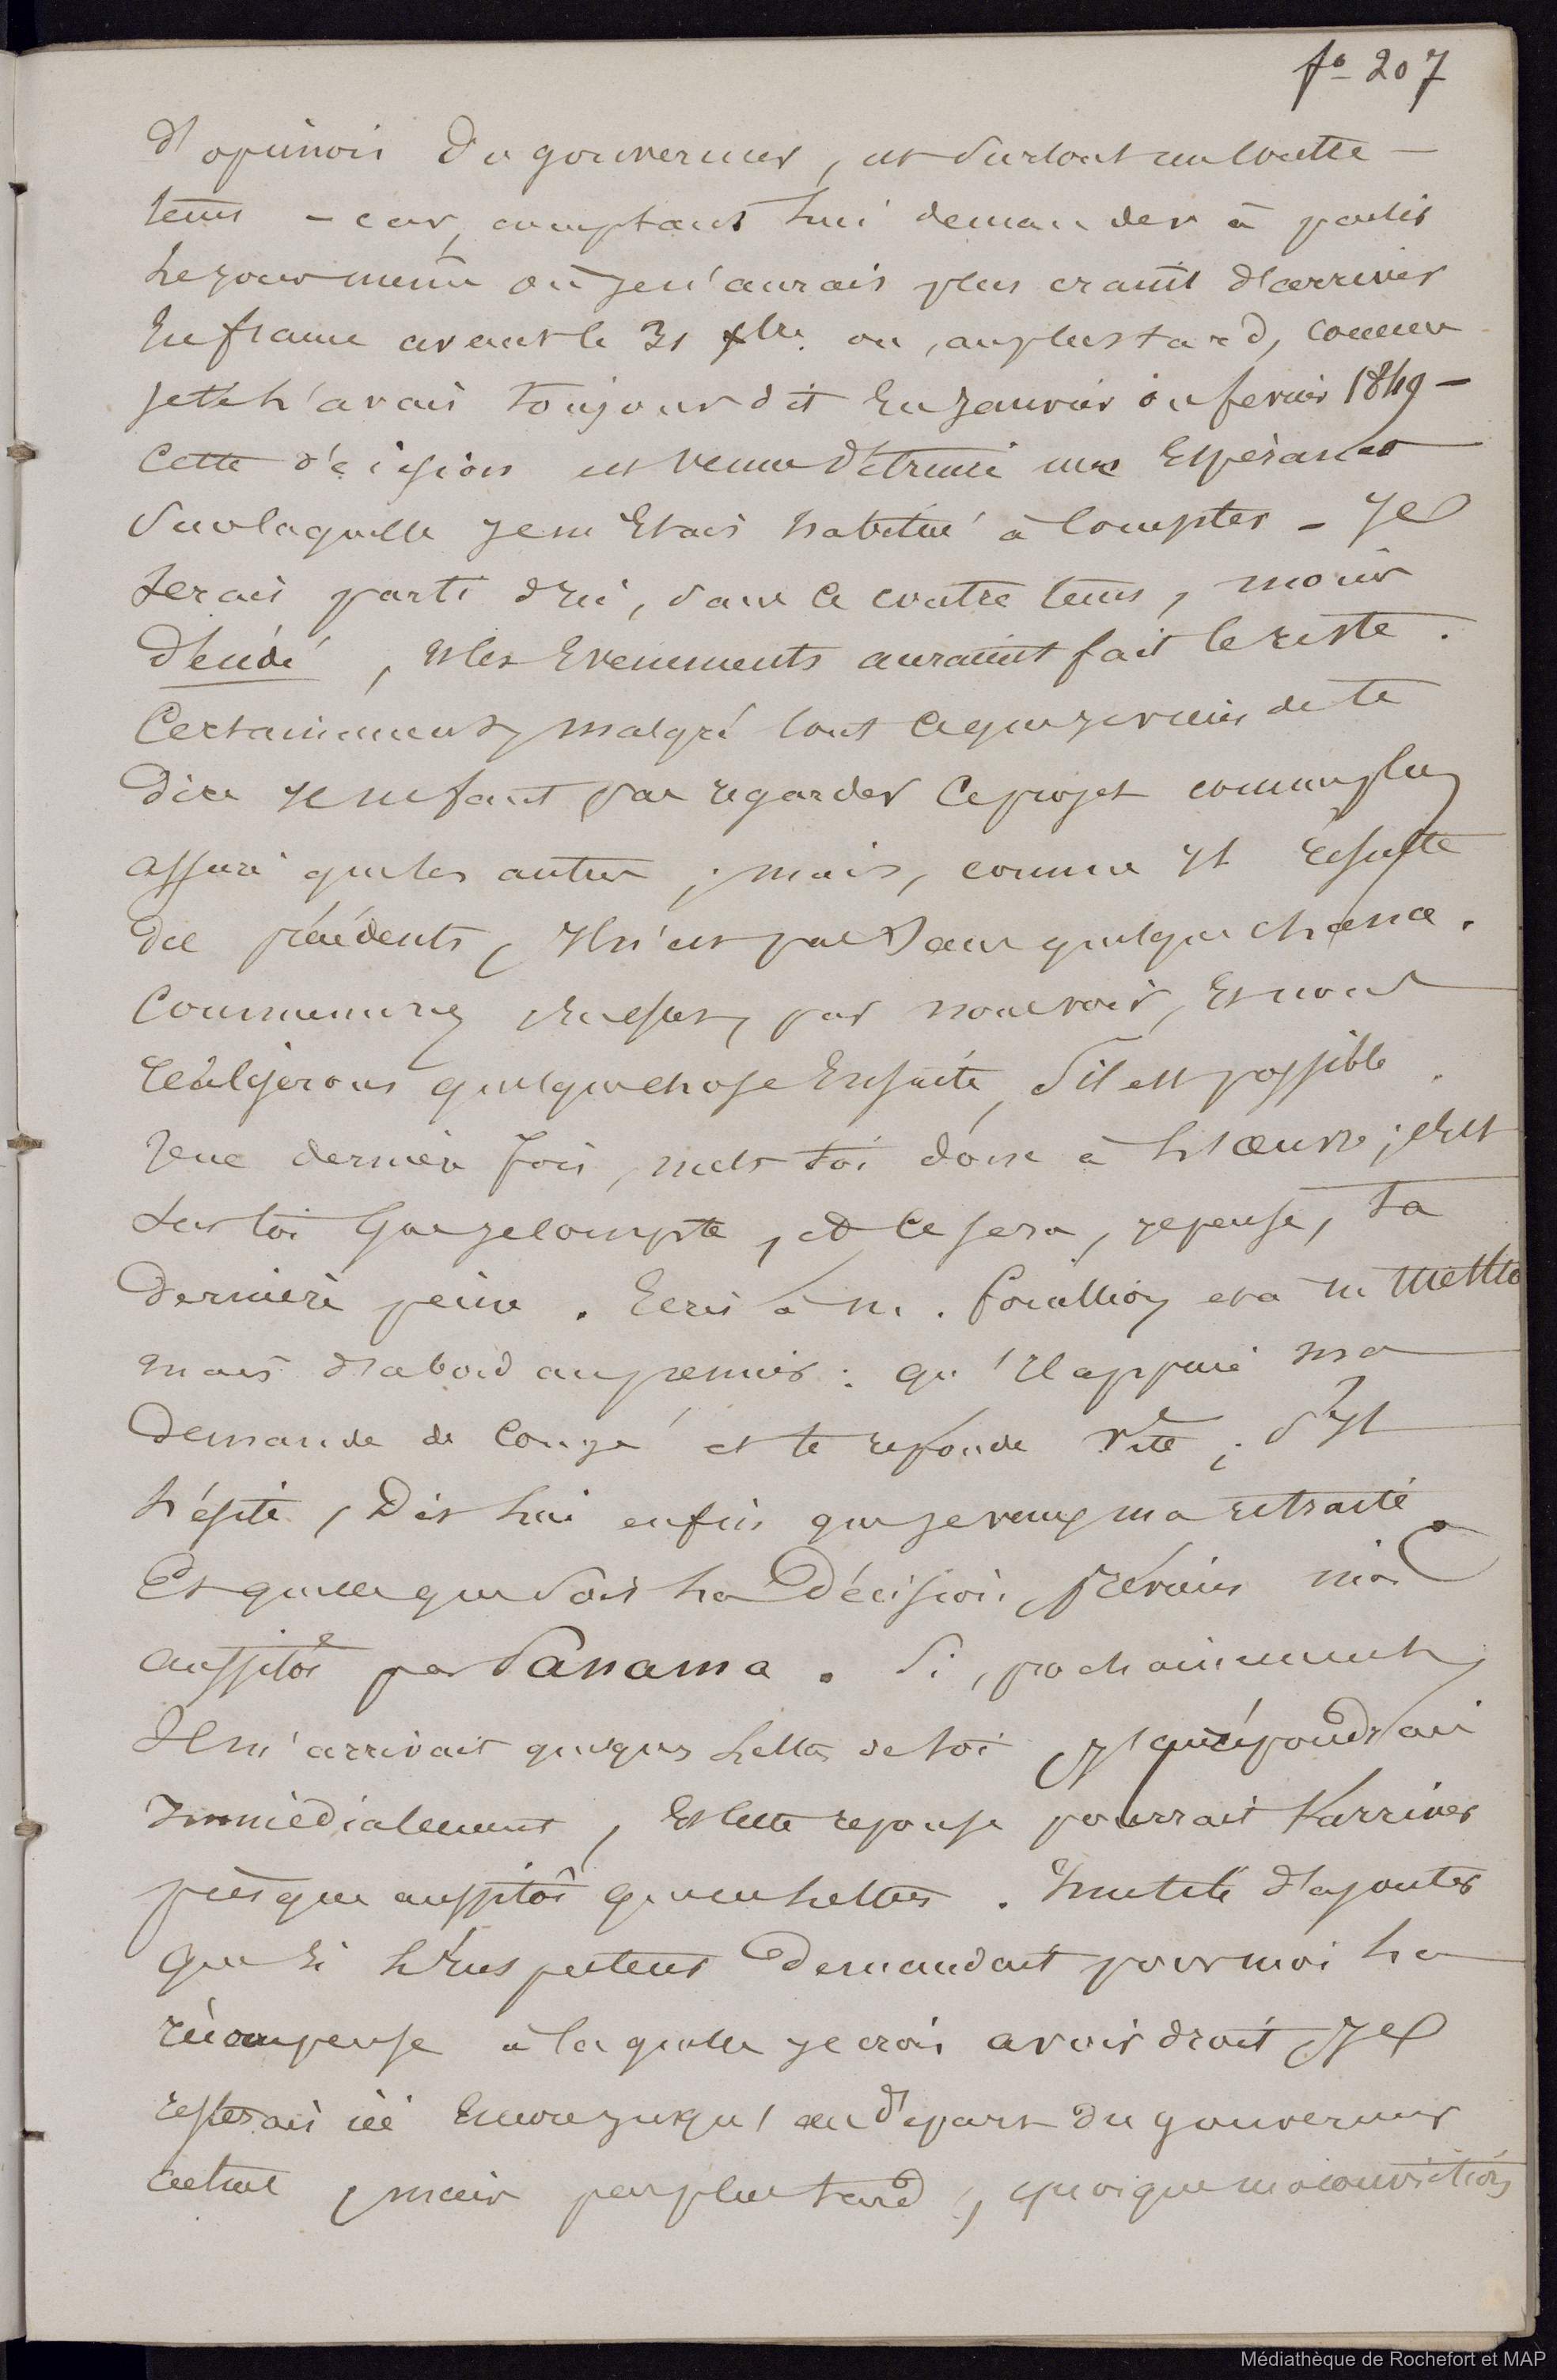 fo 207
d'opinion du gouverneur, est surtout un contre-
tems - car, comptant lui demander à partir
le jour même où je n'aurais plus craint d'arriver
En france avant le 31 xbre ou, au plus tard, comme
je te l'avais toujours dit En Janvier ou fevrier 1849 -
Cette décision est venue détruire une Espérance
sur laquelle je m'Etais habitué à Compter - Je
serais parti d'ici, sans ce contre tems, moins
d'eudé, Et les Evenements auraient fait le reste.
Certainement, malgré tout ce que je viens de te
dire Il ne faut pas regarder ce projet comme plus
assuré que les autres ; mais, comme Il résulte
de précédents, Il n'est pas sans quelque chance.
Commençons, En effet, par nous voir, Et nous
rédigerons quelque chose Ensuite, s'il est possible.
Une dernière fois, mets toi donc à l'œuvre ; c'Est
sur toi que je compte, et ce sera, je pense, ta
dernière peine. Ecris à M. fouallion et à M
mais d'abord au premier : qu'Il appuie ma
demande de Congé et te reponde vite ; s'Il
hésite, Dis lui enfin que je veux ma retraite
Et quelle que soit la Décision, préviens moi
aussitôt par Panama. Si, prochainement,
Il m'arrivait quelques lettres de toi j'y répondrai
Immédiatement, Et cette reponse pourrait t'arriver
presque aussitôt que ma lettre. Inutile d'ajouter
que si l'Inspecteur Demandait pour moi la
récompense à laquelle je crois avoir droit, Je
resterais ici Encore jusqu'au départ du gouverneur
actuel, mais pas plus tard, quoique ma conviction
Médiathèque de Rochefort et MAP